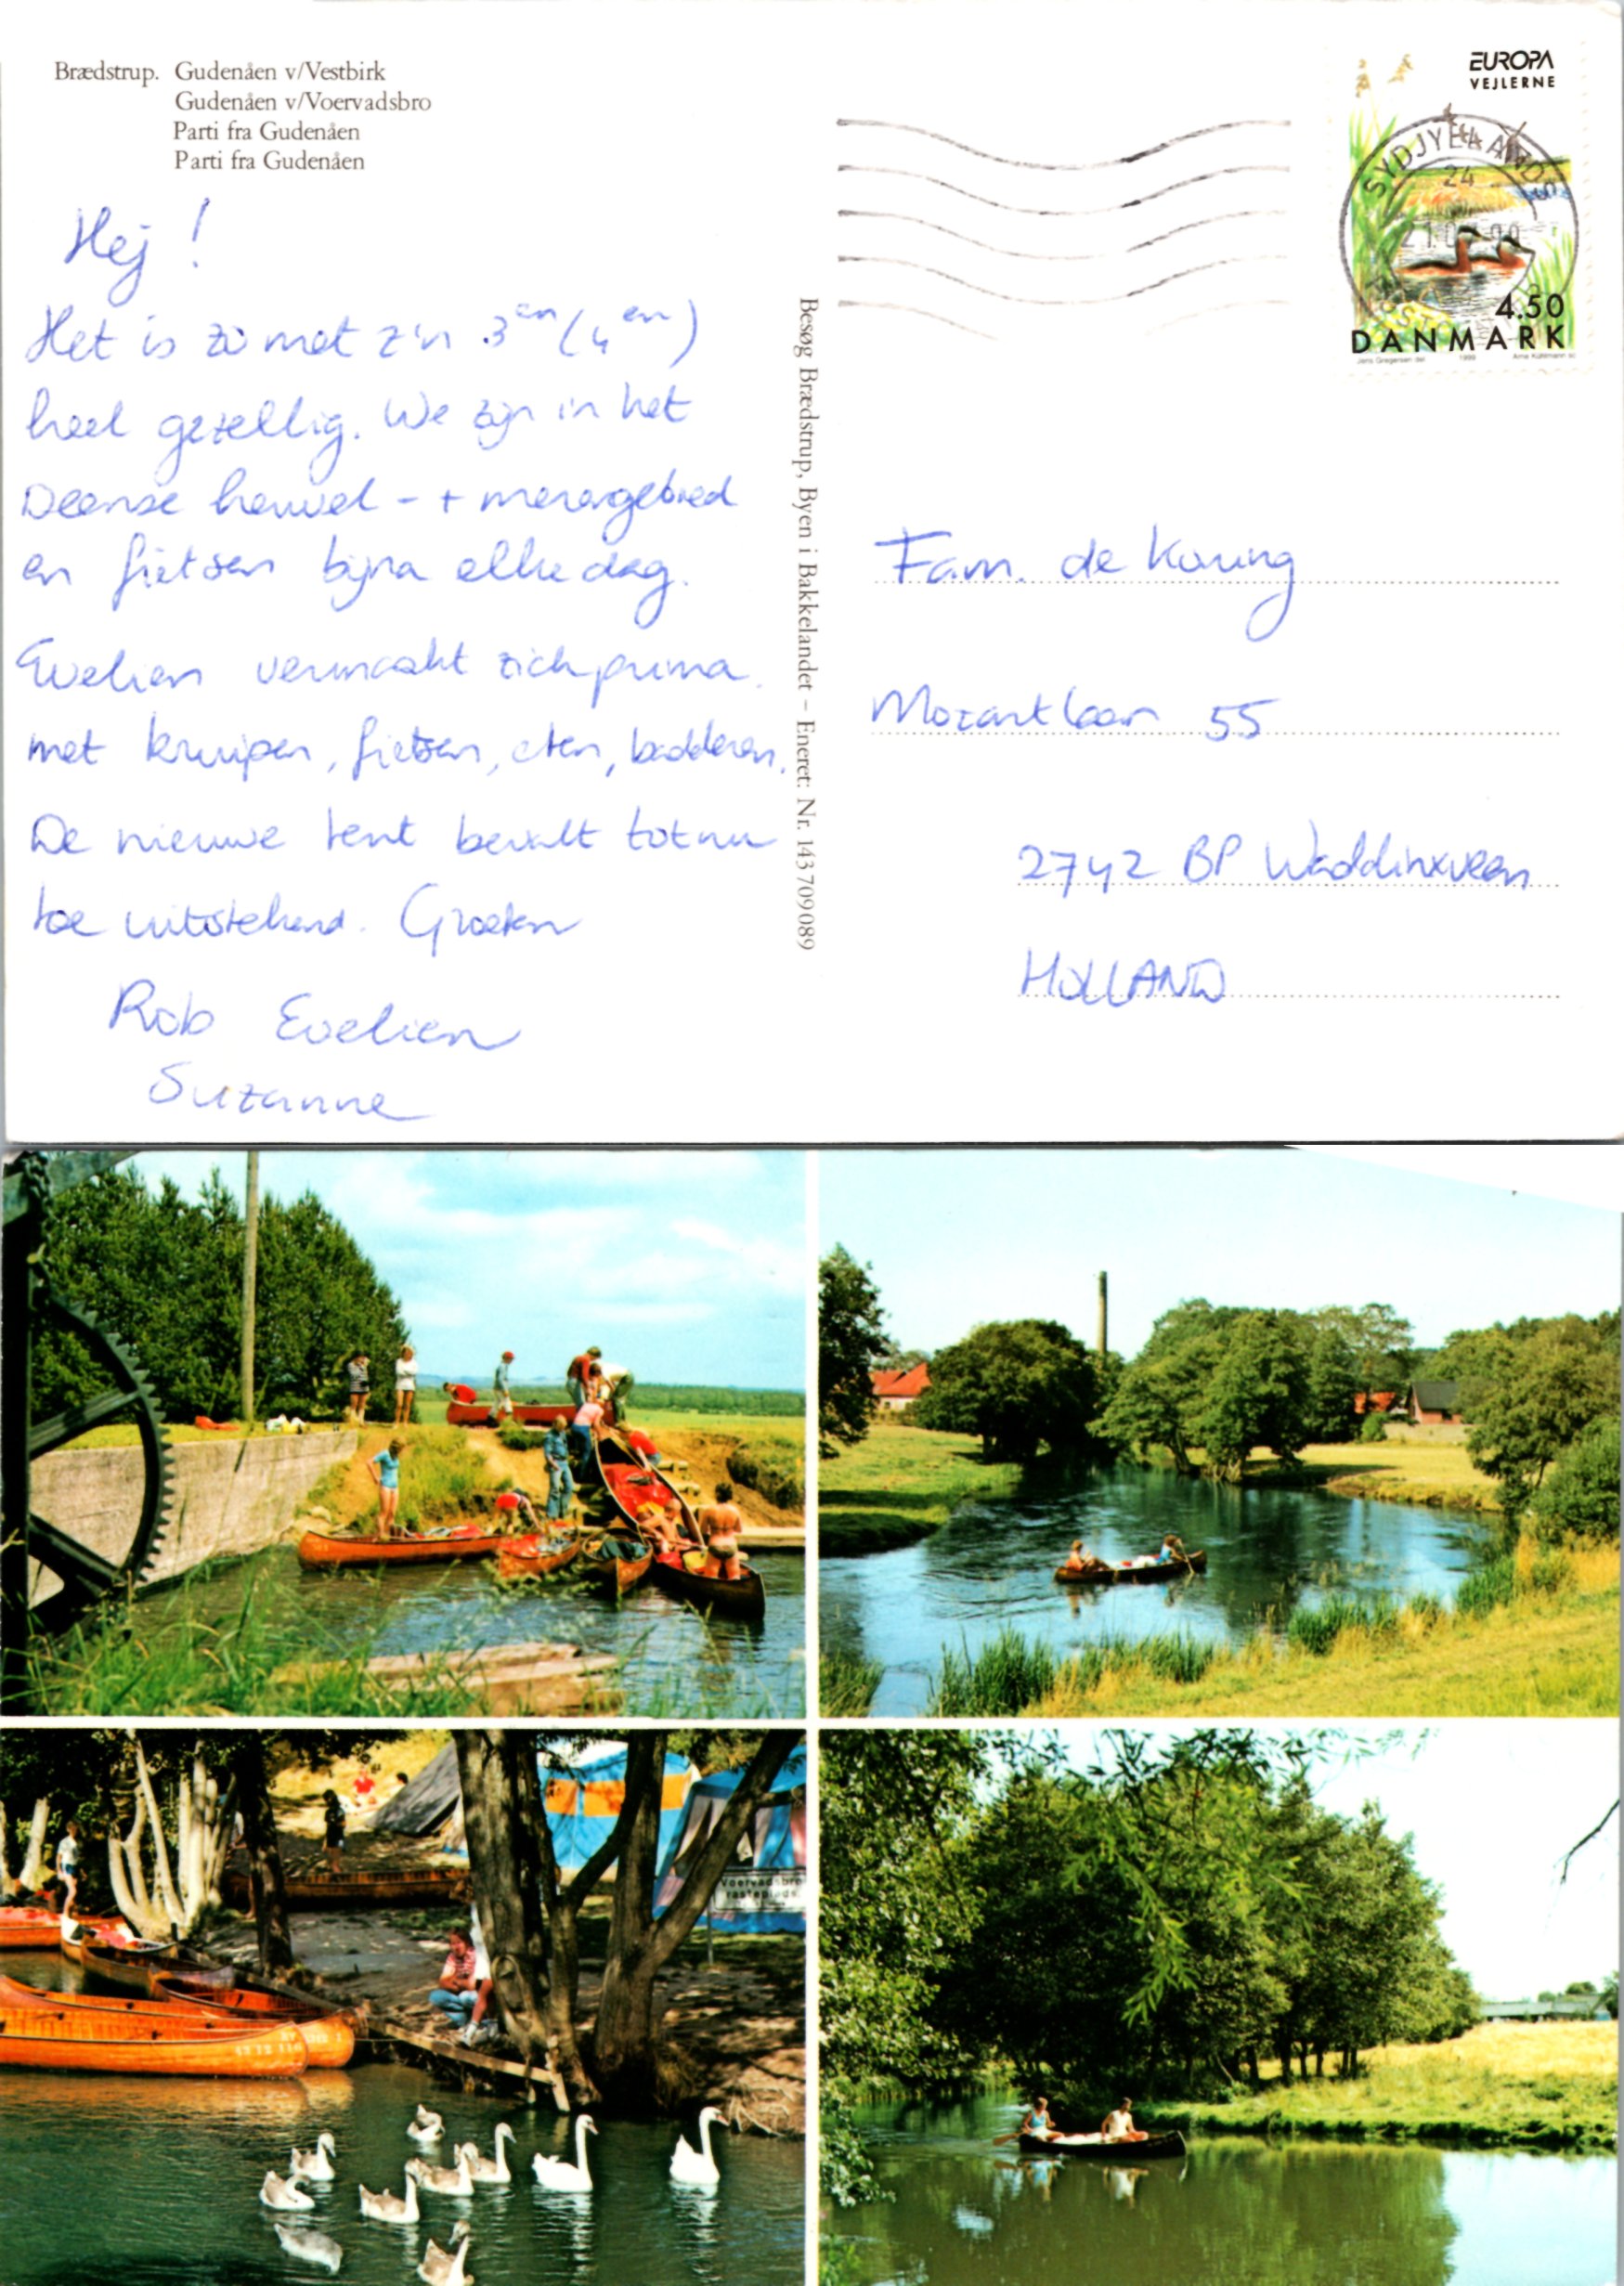 Brædstrup. Gudenåen v/Vestbirk
Gudenåen v/Voervadsbro
Parti fra Gudenåen
Parti fra Gudenåen
Hej!
Het is zo met z'n 3en (4en)
heel gezellig. We zijn in het
Deense heuvel- + merengebied
en fietsen bijna elke dag.
Evelien vermaakt zich prima
met kruipen, fietsen, eten, badderen.
De nieuwe tent bevalt tot nu
toe uitstekend. Groeten
Rob Evelien
Suzanne
Besøg Brædstrup, Byen i Bakkelandet – Eneret: Nr. 143 709089
EUROPA
VEJLERNE
SYDJYLLANDS
24
4.50
DANMARK
Jens Gregersen del. 1999 Arne Kühlmann sc.
Fam. de Koning
Mozartlaan 55
2742 BP Waddinxveen
HOLLAND
Voervadsbro
rasteplads.